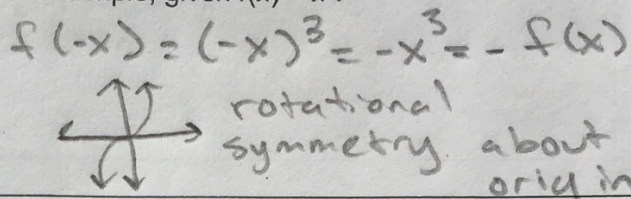 f(-x) = (-x)³ = -x³ = - f(x)
rotational
symmetry. about
origin